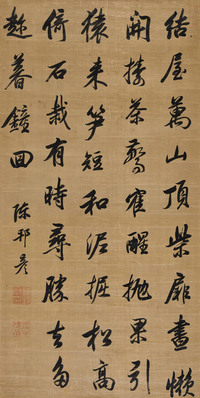 結屋萬山頂柴扉晝懶
開擣茶驚寉醒拋果引
猿来笋短和泥掘松高
倚石栽有時尋勝去多
趂暮鐘回
陳邦彥